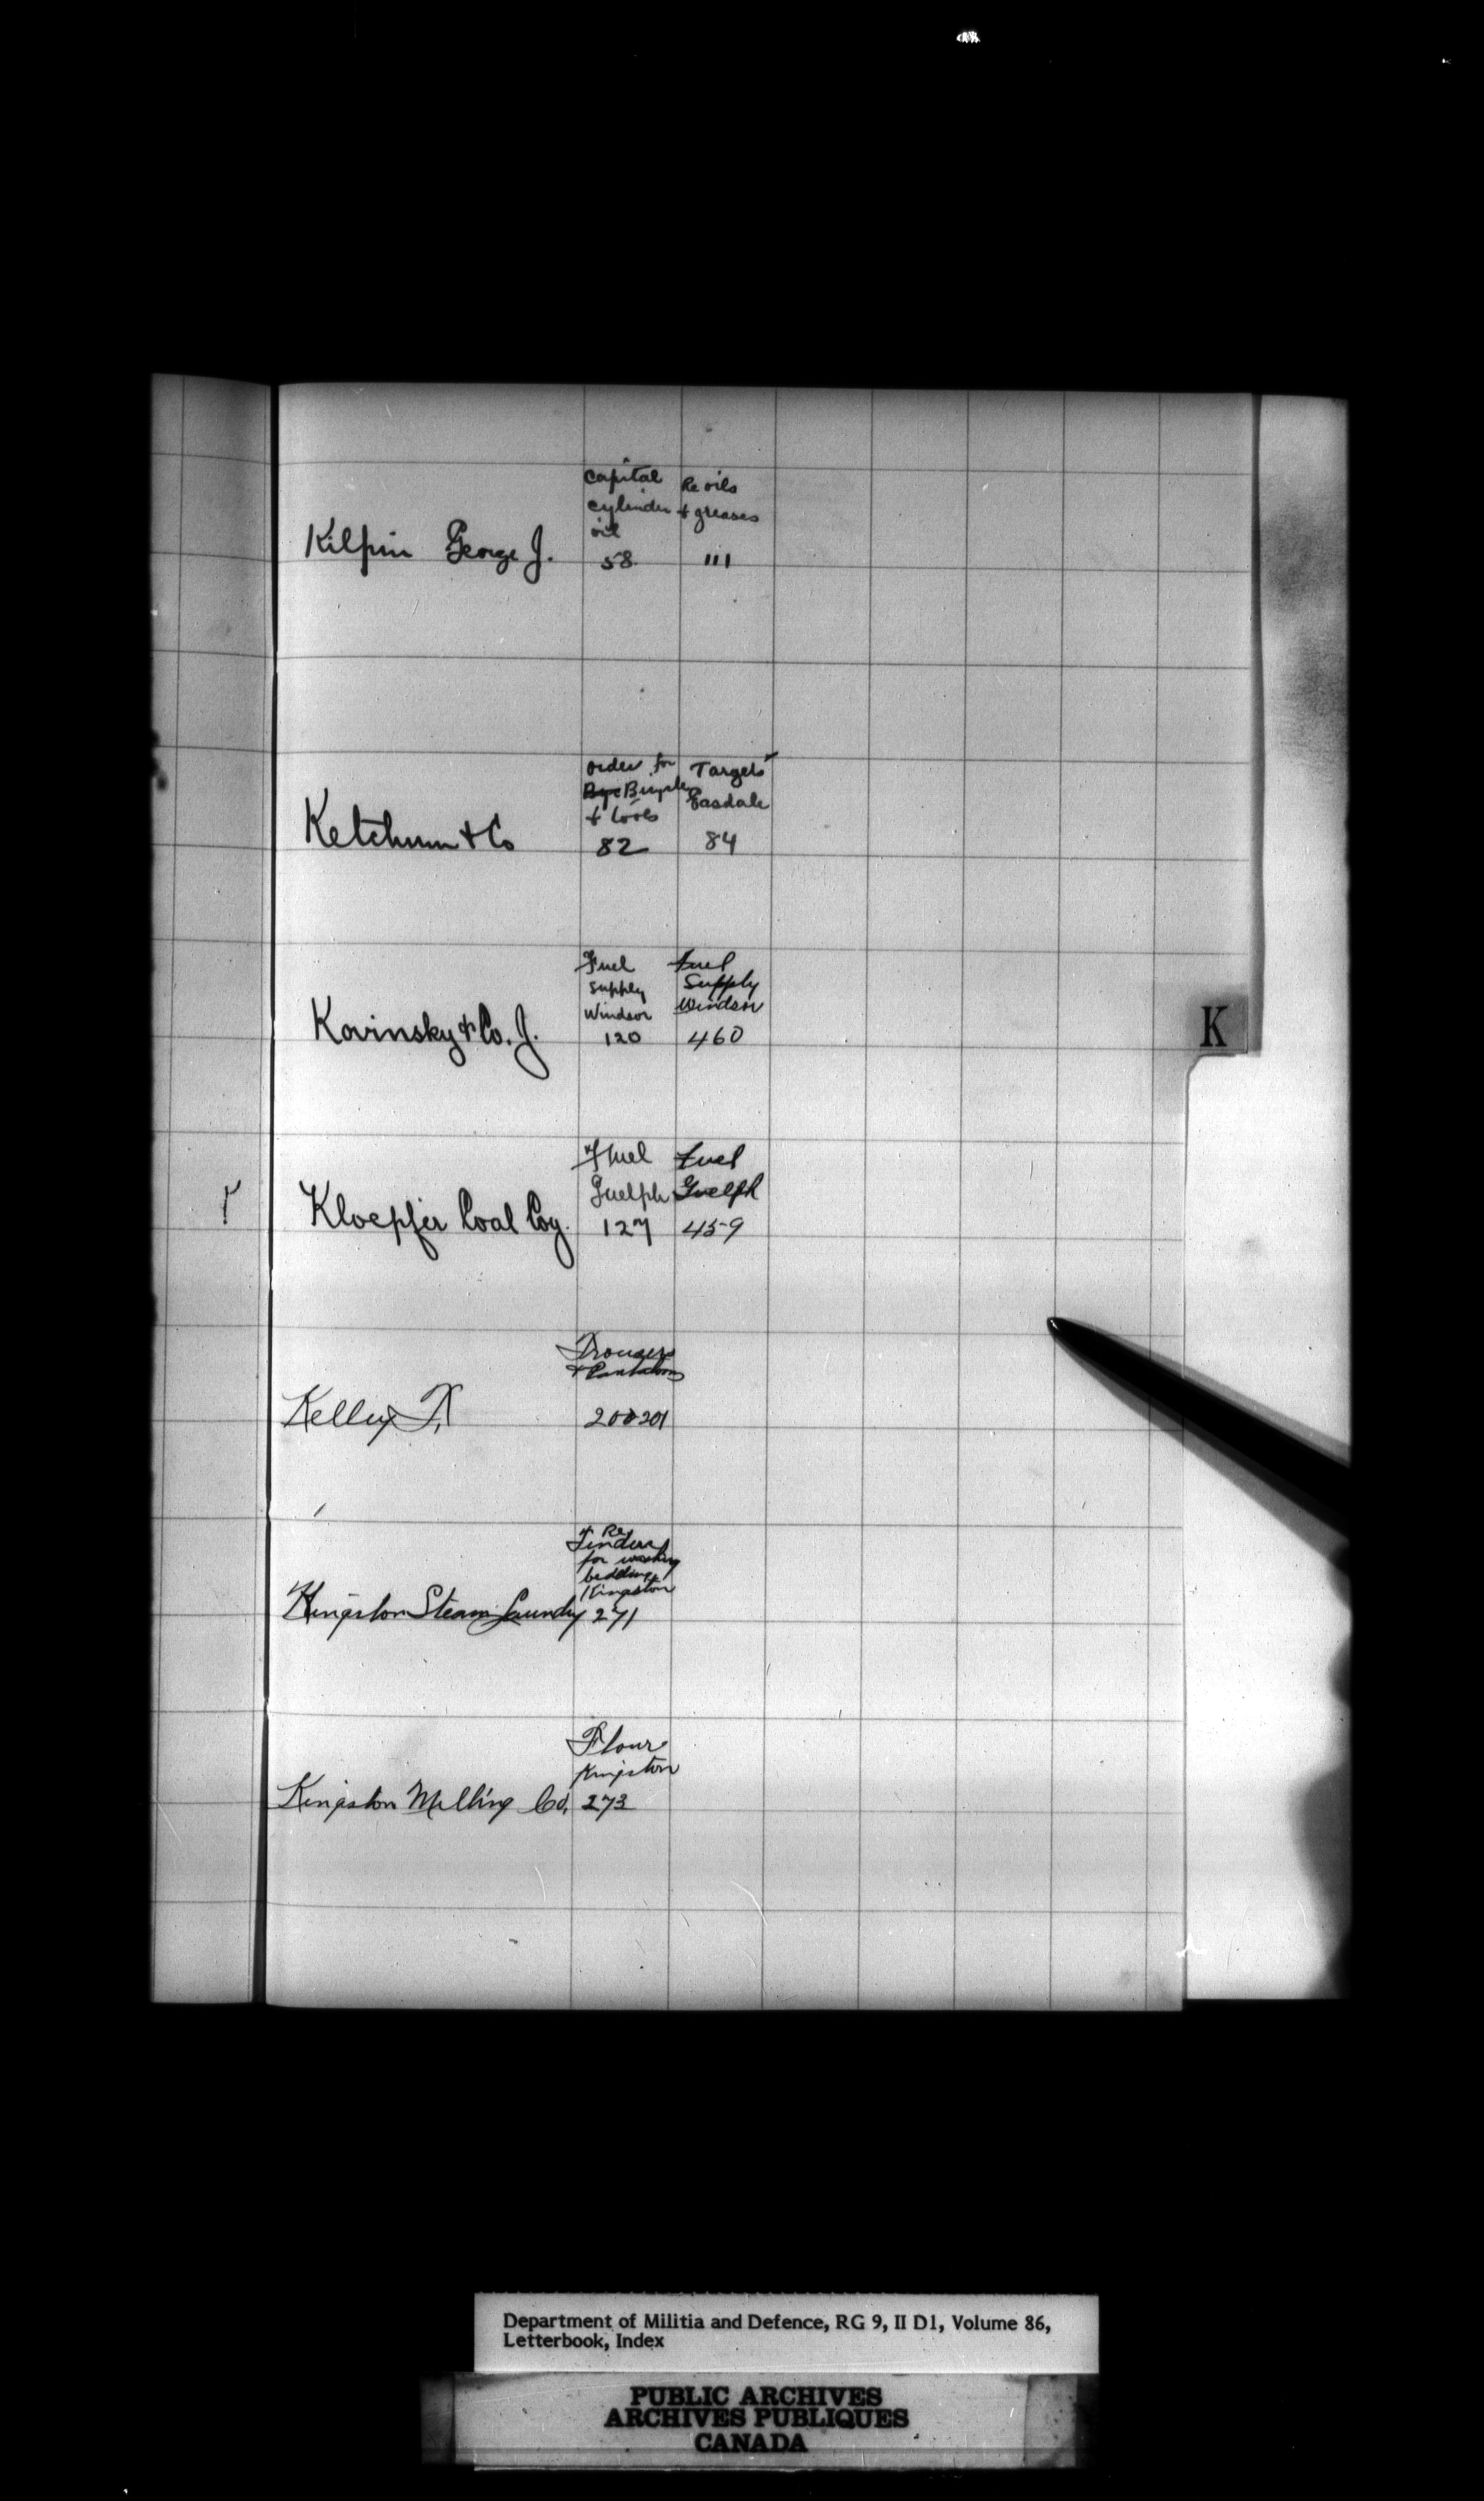 Capital Re oils
cylinder & greases
oil
Kilpin George J. 58 111
order for Targets
Byc Bicycles Easdale
& tools
Ketchum & Co 82 84
Fuel Fuel
Supply Supply
Windsor Windsor
Kovinsky & Co. J. 120 460
K
Fuel Fuel
Guelph Guelph
Kloepfer Coal Coy. 127 459
Trousers
& Pantaloons
Kelley T. 200 201
Re
Tenders
for washing
bedding
Kingston
Kingston Steam Laundry 271
Flour
Kingston
Kingston Milling Co, 273
Department of Militia and Defence, RG 9, II D1, Volume 86,
Letterbook, Index
PUBLIC ARCHIVES
ARCHIVES PUBLIQUES
CANADA